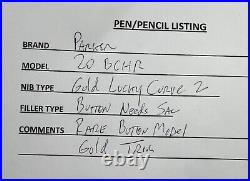 PEN/PENCIL LISTING
BRAND Parker
MODEL 20 BCHR
NIB TYPE Gold Lucky Curve 2
FILLER TYPE Button Needs Sac
COMMENTS Rare Button Model
Gold Trim